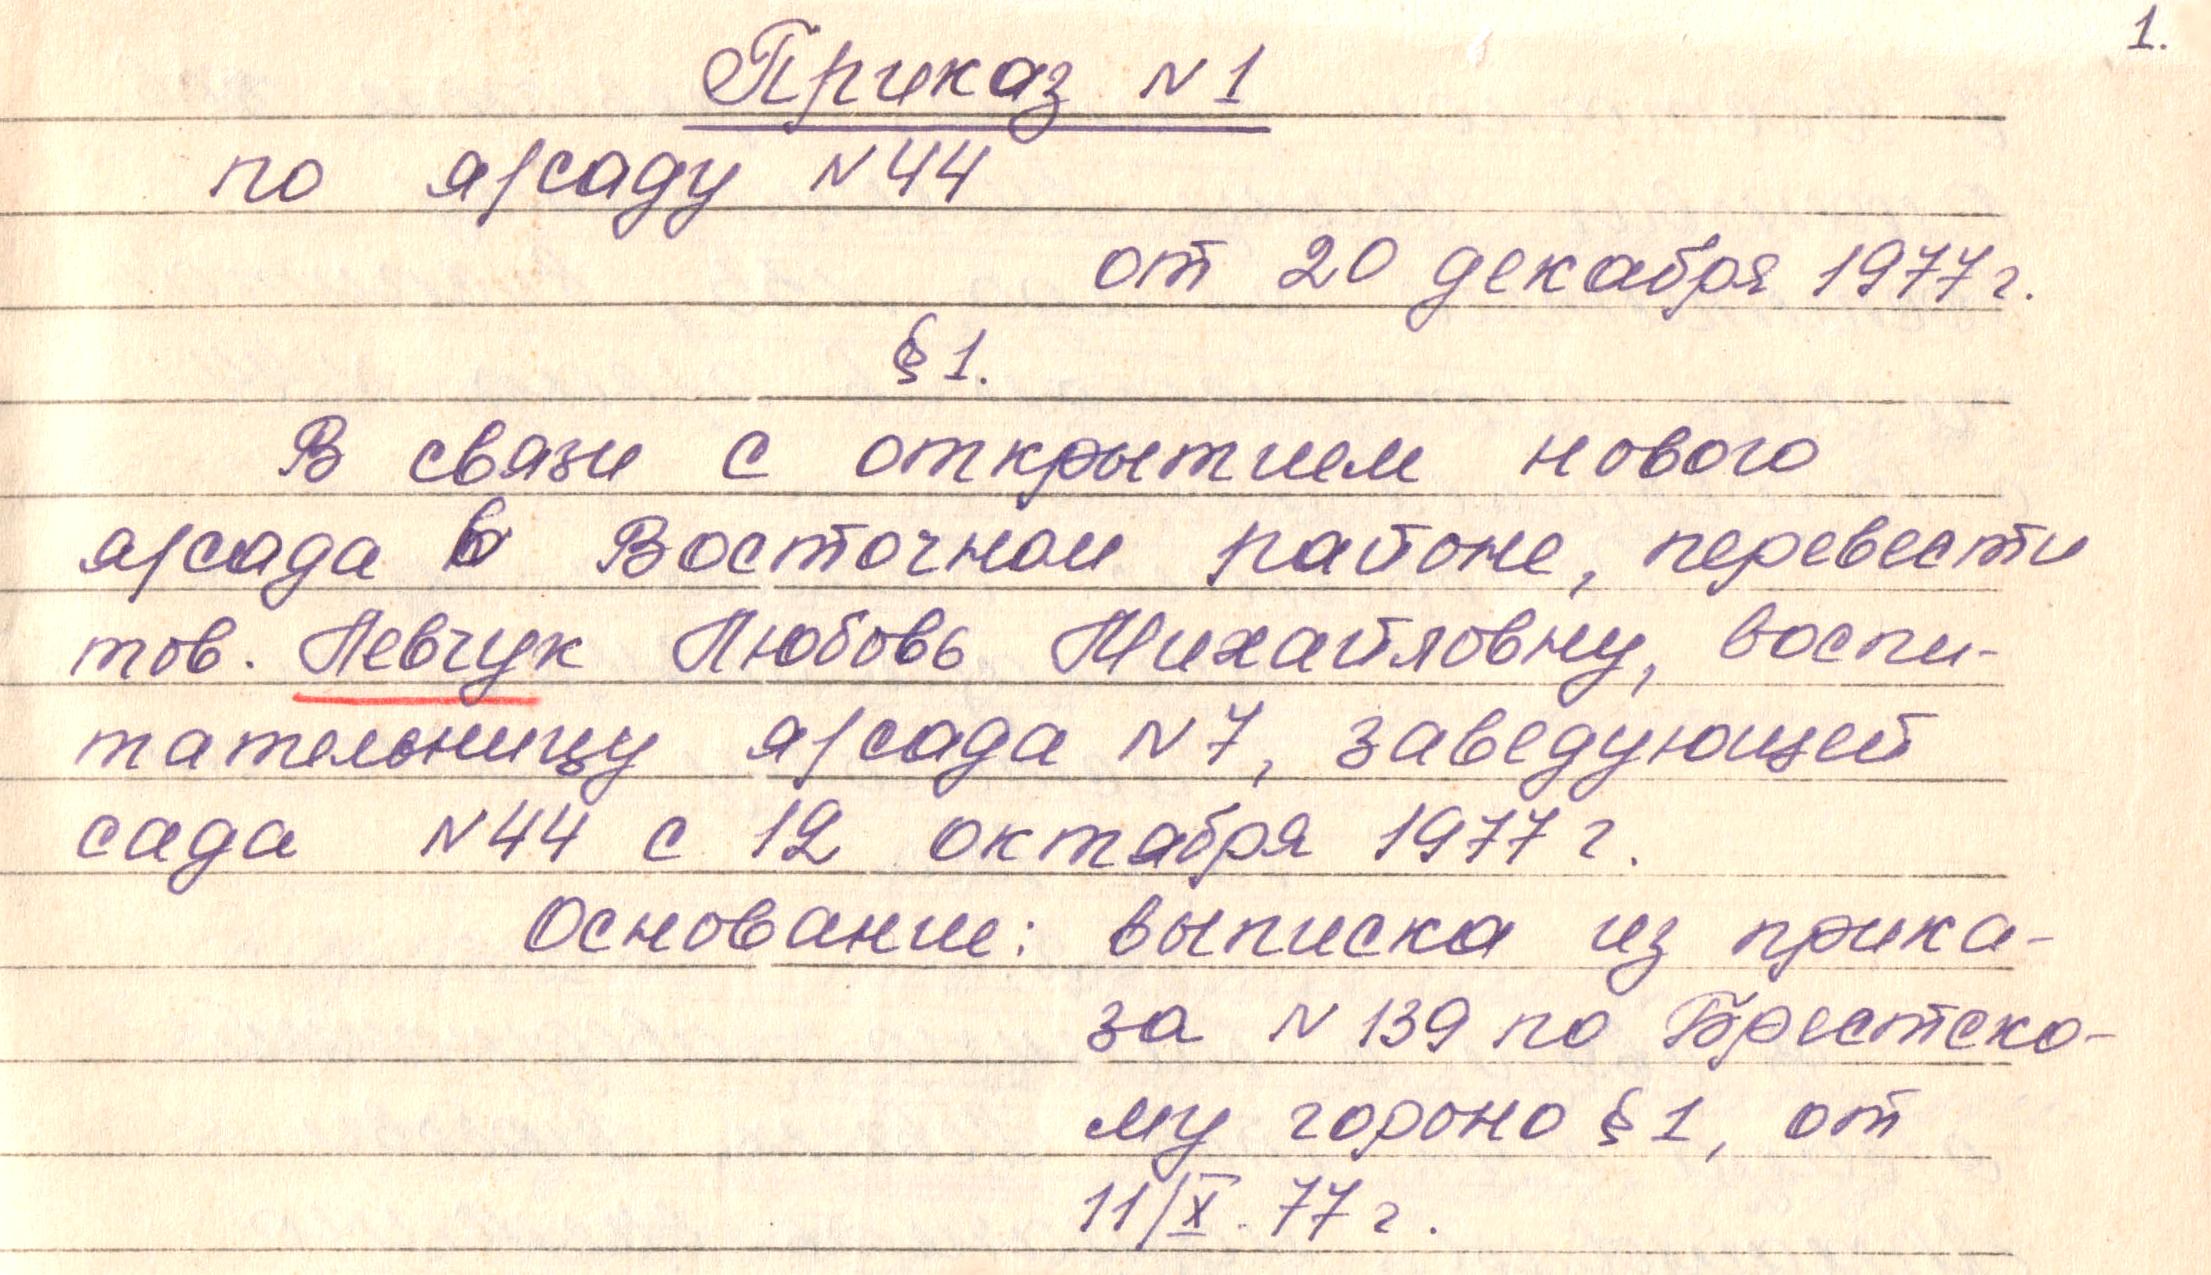 1.
Приказ N 1
по я/саду N 44
от 20 декабря 1977 г.
§ 1.
В связи с открытием нового
я/сада в Восточном районе, перевести
тов. Левчук Любовь Михайловну, воспи-
тательницу я/сада N 7, заведующей
сада N 44 с 12 октября 1977 г.
Основание: выписка из прика-
за N 139 по Брестско-
му гороно § 1, от
11/X. 77 г.